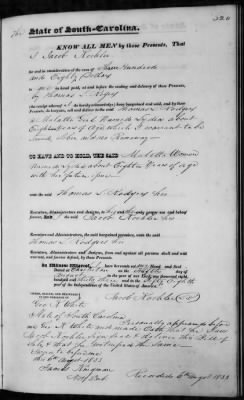 The State of South-Carolina.
KNOW ALL MEN by these Presents, That
I Jacob Koehler
for and in consideration of the sum of Four Hundred
and Eighty Dollars
to me in hand paid, at and before the sealing and delivery of these Presents,
by Thomas S.
the receipt whereof I do hereby acknowledge, have bargained and sold, and by these
Presents, do bargain, sell and deliver to the said Thomas S.
a Mulatto Girl Named Lydia about
Eighteen years of age, which I warrant to be
Sound, Sober and no Runaway
TO HAVE AND TO HOLD, THE SAID Mulatto Woman
Named Lydia about Eighteen Years of age
with her future
unto the said Thomas S. his
Executors, Administrators and Assigns, to his and their only proper use and behoof
forever. And the said Jacob Koehler his
Executors and Administrators, the said bargained premises, unto the said
Thomas S. his
Executors, Administrators and Assigns, from and against all persons shall and will
warrant, and forever defend, by these Presents.
In Witness Whereof, I have hereunto set my Hand and Seal
Dated at Charleston on the day of
in the year of our Lord one thousand eight
hundred and thirty and in the Fifty
year of the Independence of the United States of America.
SIGNED, SEALED, AND DELIVERED
IN THE PRESENCE OF
Jacob Koehler
Geo. R. White
State of South Carolina
Personally appeared before
me Geo. R. White and made Oath that he saw
Jacob Koehler Sign Seal & deliver this Bill of
Sale & that he witnessed the same
Sworn to before me
the 6th August 1833
James Kingman
Not. Pub.
Recorded 6th August 1833